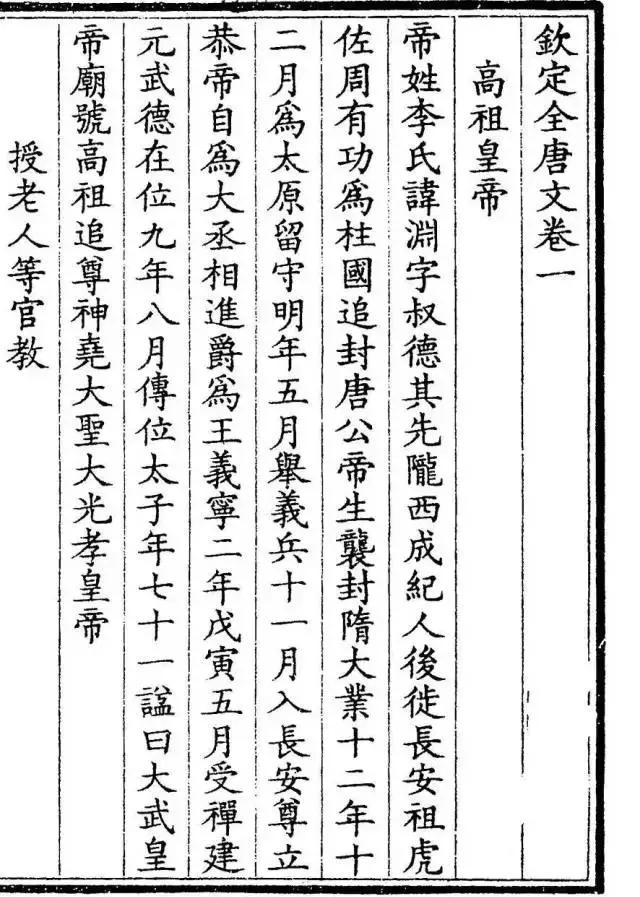 欽定全唐文卷一
高祖皇帝
帝姓李氏諱淵字叔德其先隴西成紀人後徙長安祖虎
佐周有功爲柱國追封唐公帝生襲封隋大業十二年十
二月爲太原留守明年五月舉義兵十一月入長安尊立
恭帝自爲大丞相進爵爲王義寧二年戊寅五月受禪建
元武德在位九年八月傳位太子年七十一諡曰大武皇
帝廟號高祖追尊神堯大聖大光孝皇帝
授老人等官教